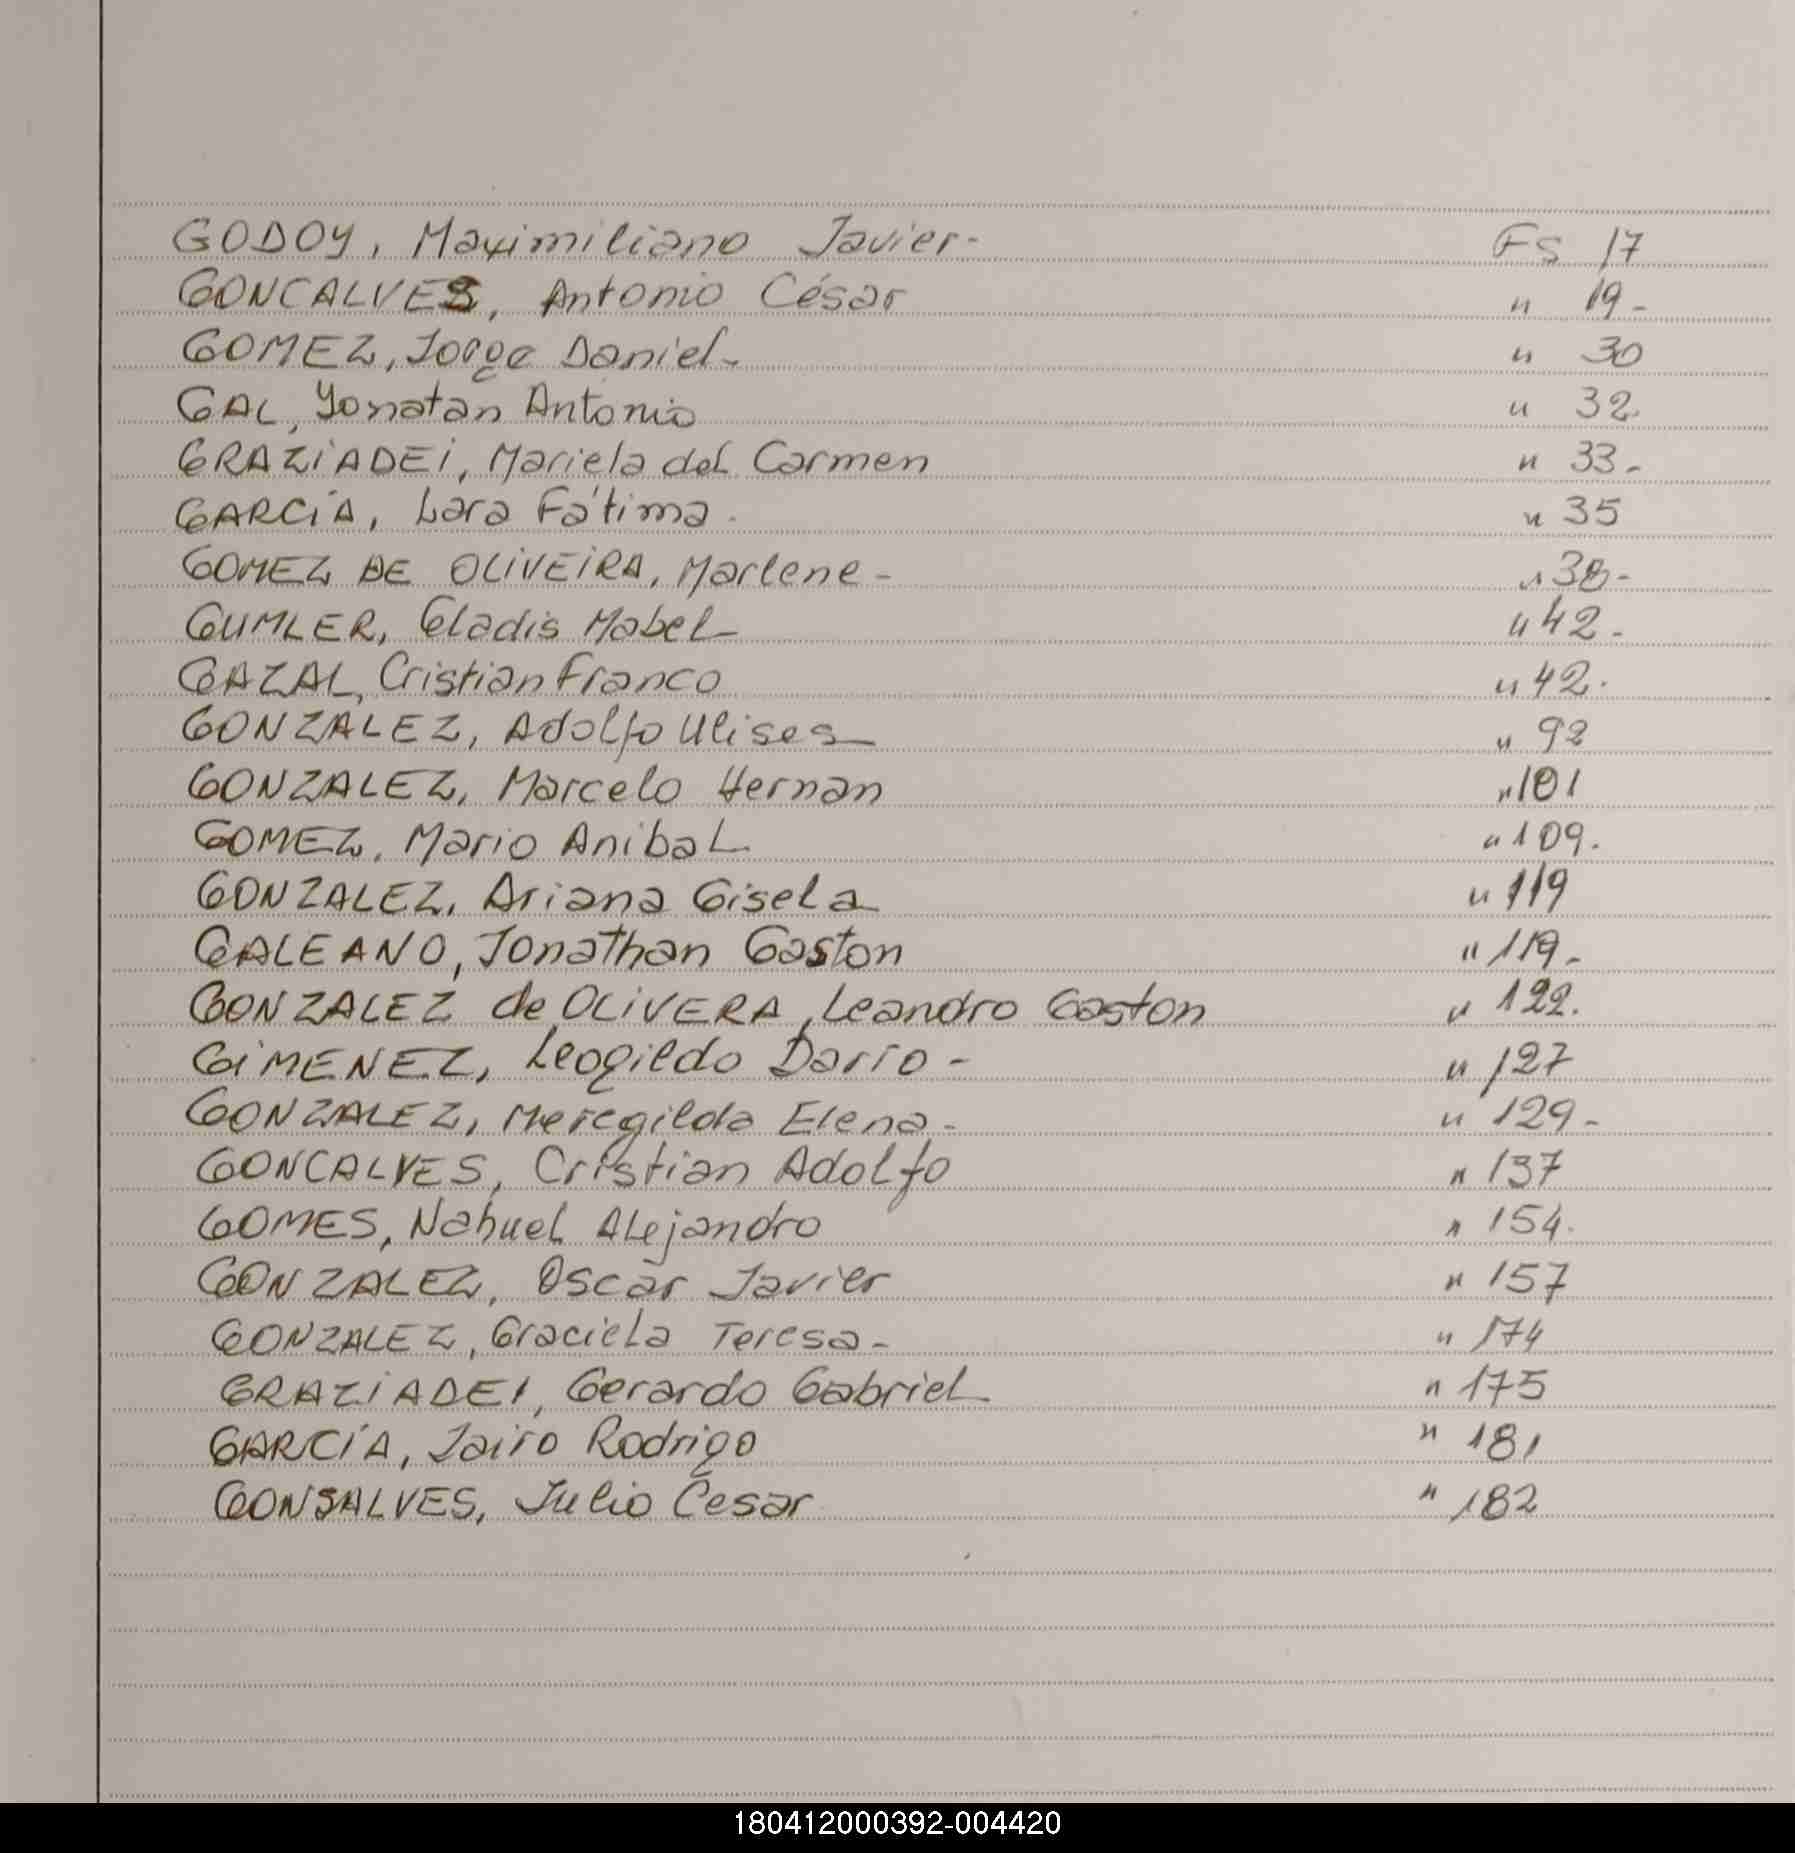 GODOY, Maximiliano Javier- Fs 17
GONCALVES, Antonio César " 19-
GOMEZ, Jorge Daniel- " 30
GAL, Yonatan Antonio " 32.
GRAZiADEi, Mariela del Carmen " 33-
GARCíA, Lara Fátima. " 35
GOMEZ DE OLiVEiRA, Marlene- " 38-
GUMLER, Gladis Mabel- " 42-
GAZAL, Cristian Franco " 42.
GONZÁLEZ, Adolfo Ulises- " 92
GONZALEZ, Marcelo Hernan " 101
GOMEZ, Mario Anibal " 109.
GONZALEZ, Ariana Gisela " 119
GALEANO, Jonathan Gaston " 119-
GONZALEZ de OLiVERA, Leandro Gaston " 122.
GiMENEZ, Leogildo Dario- " 127
GONZALEZ, Meregilda Elena- " 129-
GONCALVES, Cristian Adolfo " 137
GOMES, Nahuel Alejandro " 154.
GONZALEZ, Oscar Javier " 157
GONZALEZ, Graciela Teresa- " 174
GRAZiADEI, Gerardo Gabriel " 175
GARCÍA, Jairo Rodrigo " 181
GONSALVES, Julio Cesar " 182
180412000392-004420